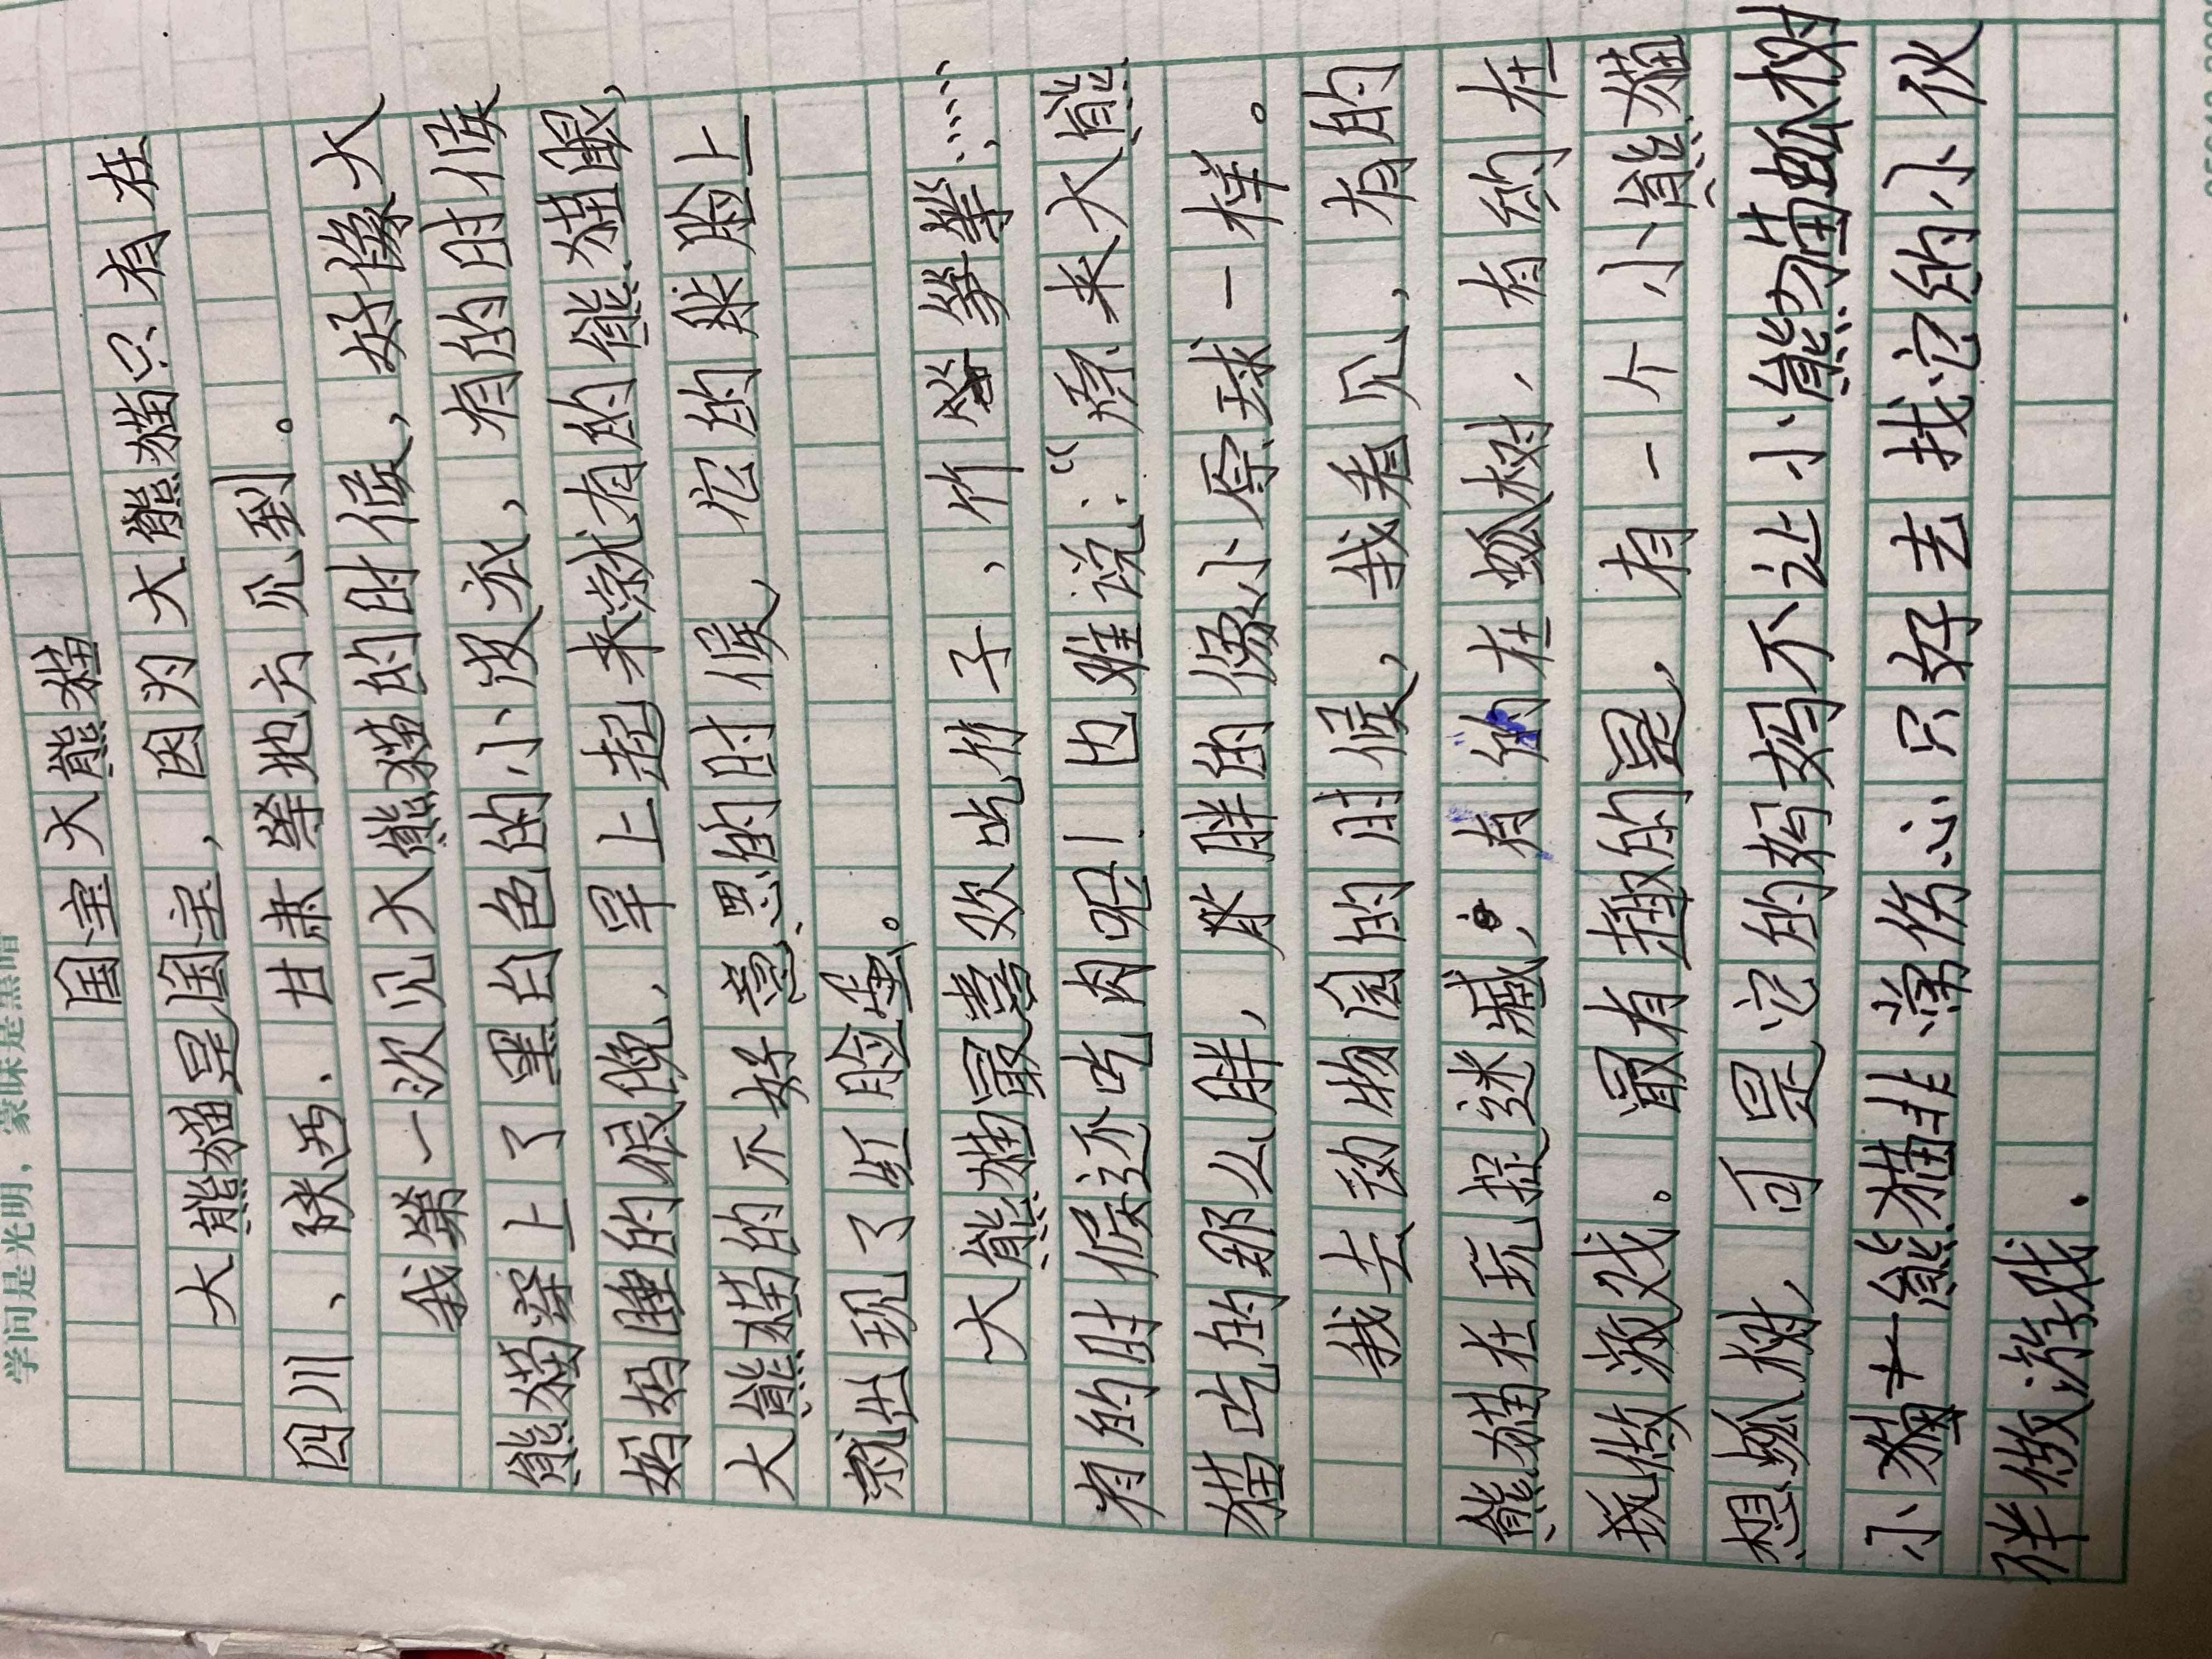 学问是光明，蒙昧是黑暗
国宝大熊猫
大熊猫是国宝，因为大熊猫只有在
四川、陕西、甘肃等地方见到。
我第一次见大熊猫的时候，好像大
熊猫穿上了黑白色的小皮衣，有的时候
妈妈睡的很晚，早上起来就有的熊猫眼，
大熊猫的不好意思的时候，它的胖脸上
就出现了红脸蛋。
大熊猫最喜欢吃竹子，竹笋等……
有的时候还吃肉呢！也难说：“原来大熊
猫吃的那么胖，胖胖的像小原球一样。
我去动物园的时候，我看见，有的
熊猫在玩捉迷藏，有的在爬树，有的在
我做游戏。最有趣的是，有一个小熊猫
想爬树，可是它的妈妈不让小熊猫爬树
小猫熊猫非常伤心只好去找它的小伙
伴做游戏.